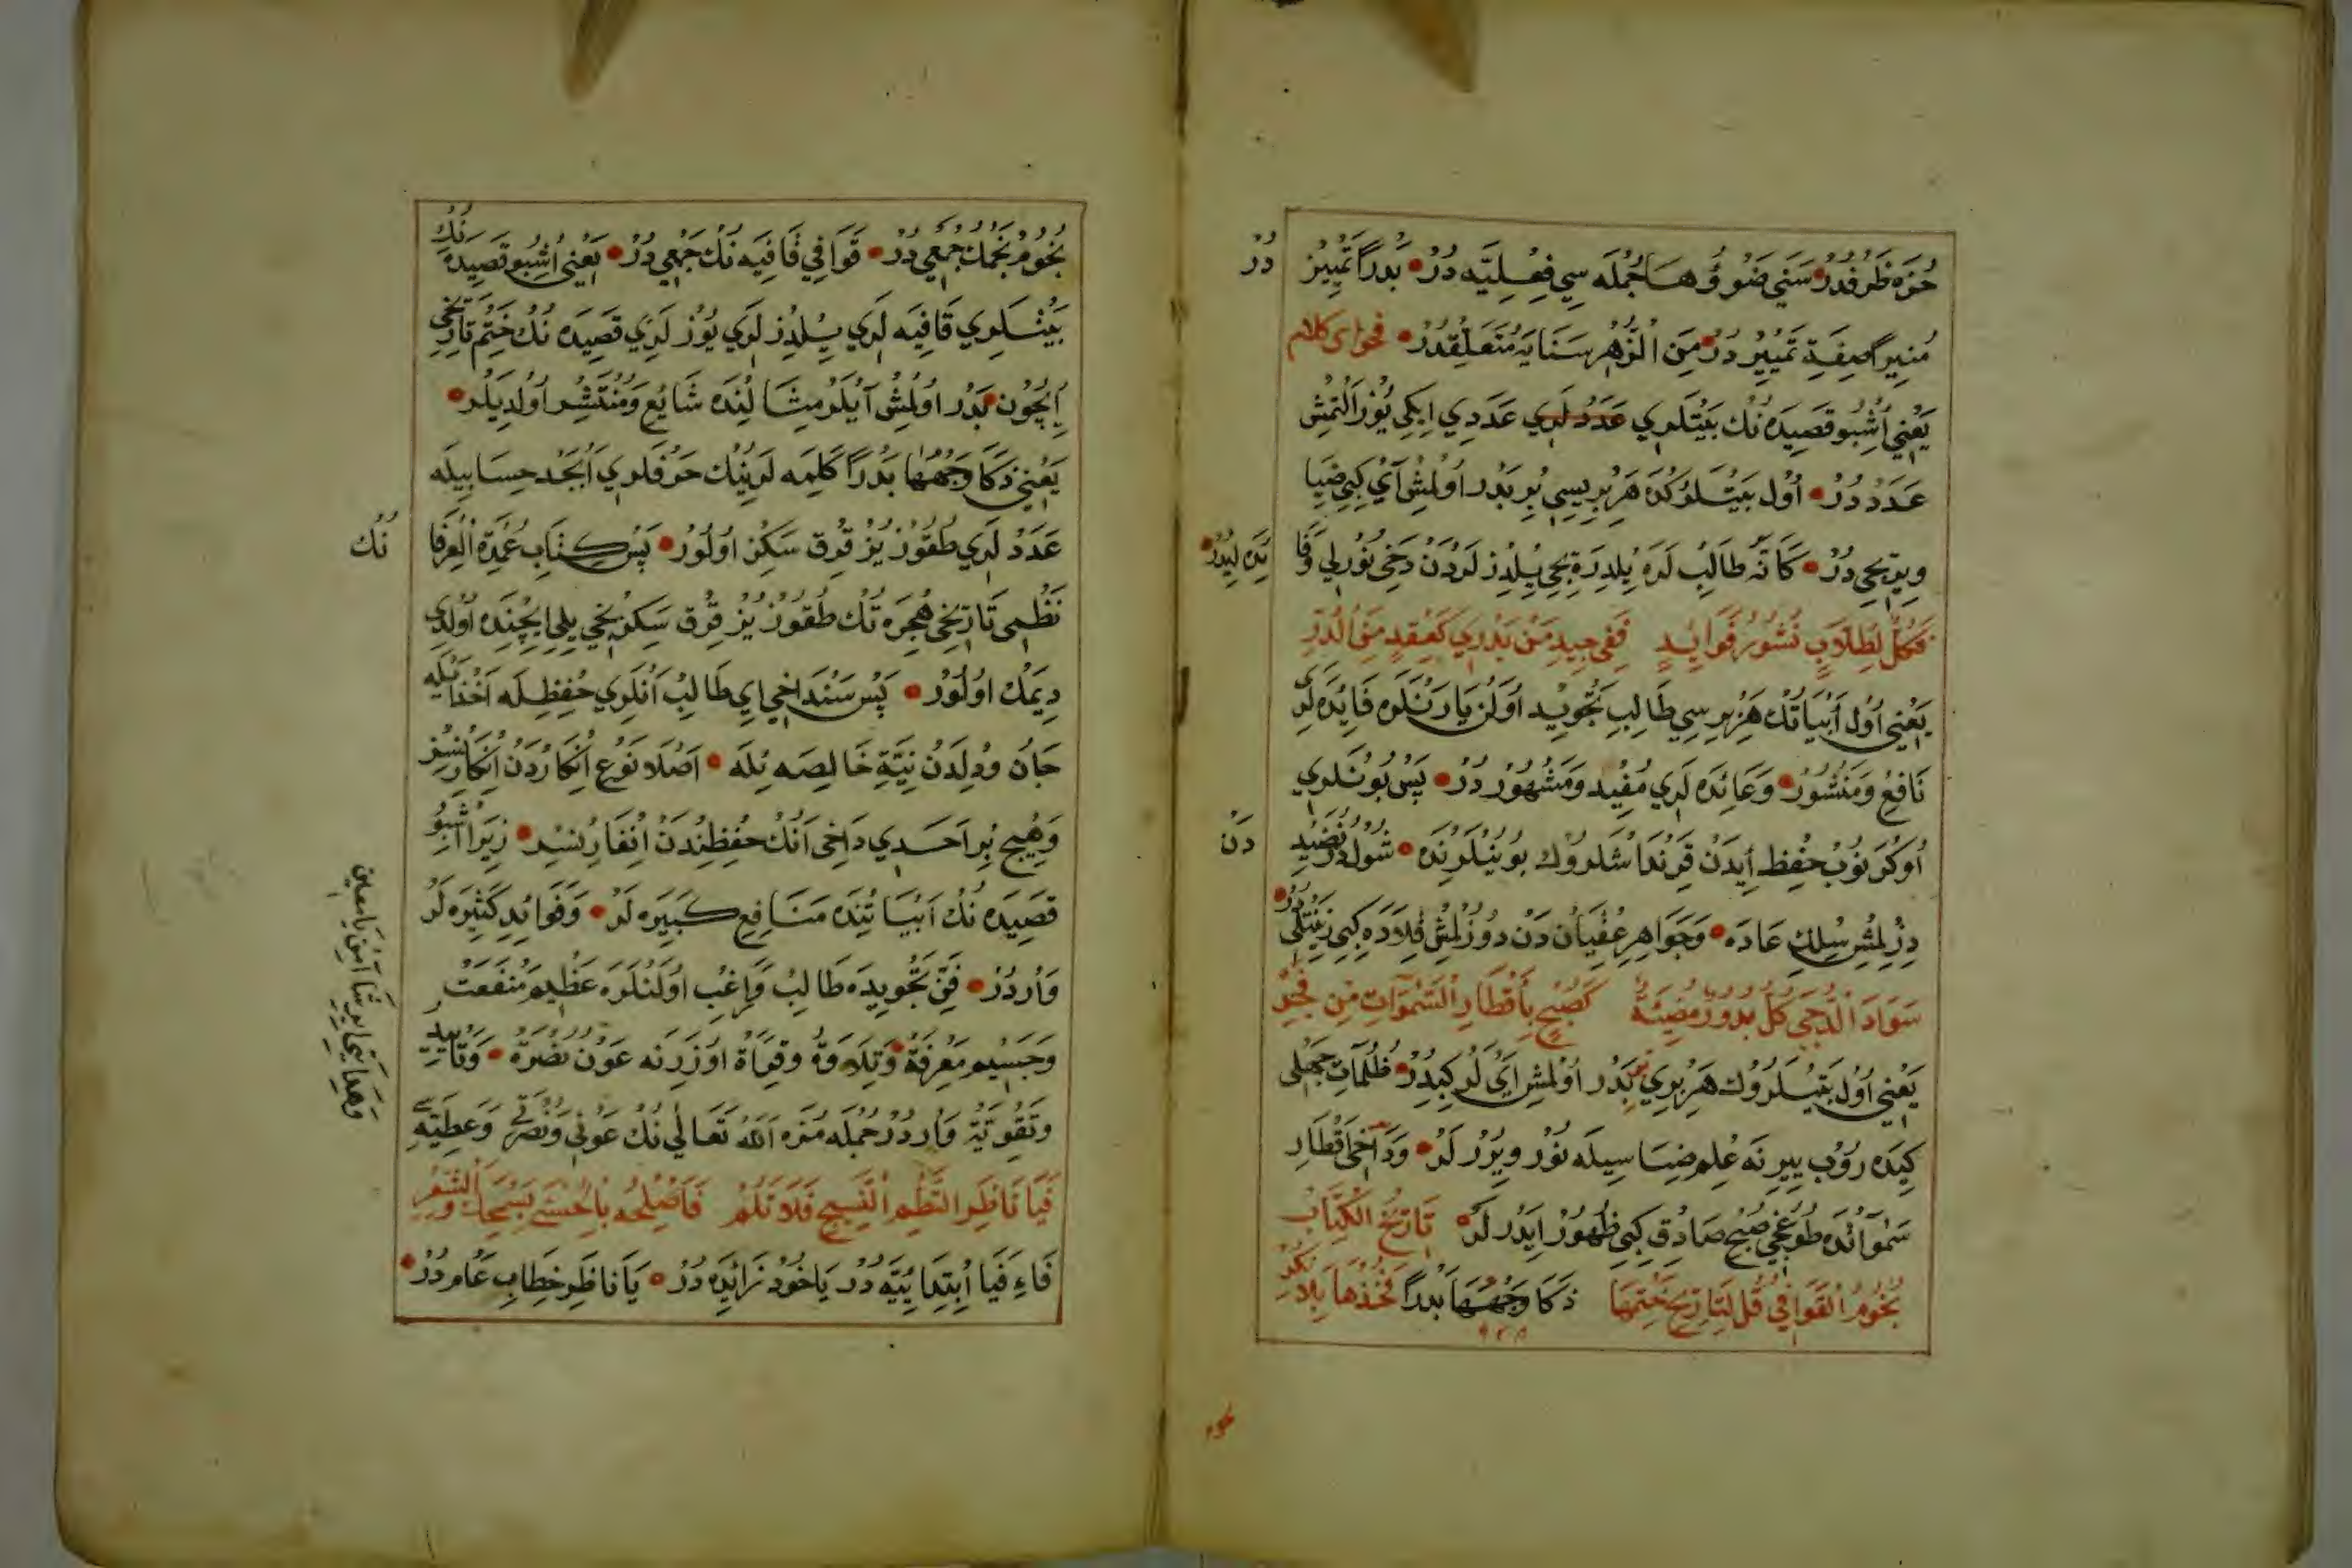 حُزَه ظَرْفدُرْ سَنَي ضَوْؤُهَا جُمْلَه سِي فِعْلِيَّه دُرْ بَدْرًا تَمْيِيزْ
دُرْ
مُنِيرًا صِفَةِ تَمْيِيزْ دُرْ مِنَ الزُّهْرِ سَنَايَه مُتَعَلِّقدُرْ فحواى كلام
يَعْنِي اُشْبُو قَصِيدَه نُكْ بَيْتلَرِي عَدَدْ لَرِي عَدَدِي اِيكِي يُوزْ اَلْتمِشْ
عَدَدْ دُرْ اُول بَيْتلَرْكه هَرْ بِرِيسِي بِرْ بَدْر اُولْمِشْ آيْ كِبِي ضِيَا
وِيرِيجِي دُرْ كَانَّه طَالِبْ لَرَه يِلْدِزْ لَرْدَنْ دَخِي نُورْلِي وَفَا
يَدَه لِيدُرْ
فَكُلٌّ لِطُلَّابٍ نُشُورُ فَوَايِدٍ فَفِي جِيدِ مَنْ يَدْرِي كَعِقْدٍ مِنَ الدُّرِّ
يَعْنِي اُول اَبْيَاتُكْ هَرْ بِرِسِي طَالِبِ تَجْوِيد اُولَنْ يَارَنْلَرَه فَائِدَه لَرِي
نَافِعْ وَمَنْشُورْ وَعَائِدَه لَرِي مُفِيد وَمَشْهُورْ دُرْ پَسْ بُونْلَرِي
اُوكْرَنُوبْ حِفْظ اِيدَنْ قَرِنْدَاشْلَرُوكْ بُويِنْلَرِنْدَه شول دُرِّ نَضِيد
دَنْ
دِزِلْمِشْ سِلْكِ عَادَه وَجَوَاهِرِ عِقْيَانْ دَنْ دُوزُلْمِشْ قِلَادَه كِبِي زِينَتْلِي
دُرْ
سَوَادَ الدُّجَى كُلٌّ بدور مُضِيئَةٌ كَصُبْحٍ بِأَقْطَارِ السَّمَوَاتِ مِنْ فَجْرٍ
يَعْنِي اُول بَيْتلَرُوكْ هَرْ بِرِي بِرْ بَدْر اُولْمِشْ اَيْ لَرْ كِبِيدُرْ ظُلُمَاتِ جَهْلِى
كِيدَه رُوبْ يِيرِنَه عِلْم ضِيَاسِيلَه نُورْ وِيرُرْ لَرْ وَدَاخِي اَقْطَارِ
سَمَوَاتْدَه طُوغِيجِي صُبْحِ صَادِقْ كِبِي ظُهُورْ اِيدَرْ لَرْ تَارِيخُ الْكِتَابِ
نُجُومُ الْقَوَافِي قُلْ لِتَارِيخِ خَتْمِهَا ذَكَا وَجْهُهَا بَدْرًا فَخُذْهَا بِلَا نُكْرِ
٩٤٨
نُجُومْ نَجْمُكْ جَمْعِي دُرْ قَوَافِي قَافِيَه نُكْ جَمْعِي دُرْ يَعْنِي اُشْبُو قَصِيدَه نُكْ
بَيْتلَرِي قَافِيَه لَرِي يِلْدِزْ لَرِي يُوزْ لَرِي قَصِيدَه نُكْ خَتْمِ تَارِيخِي
اِيچُونْ بَدْر اُولْمِشْ آيْلَرْ مِثَالِنْدَه شَايِعْ وَمُنْتَشِر اُولدِيلَرْ
يَعْنِي ذَكَا وَجْهُهَا بَدْرًا كَلِمَه لَرِينُكْ حَرْفلَرِي اَبْجَد حِسَابِيلَه
عَدَدْ لَرِي طُقُوزْ يُزْ قِرْق سَكِزْ اُولُورْ پَسْ كِتَابِ عُمْدَة الْعِرْفَا
نُكْ
نَظْمِى تَارِيخِى هِجْرَه تُكْ طُقُوزْ يُزْ قِرْق سَكِزِنْجِي يِلِي اِيچِنْدَه اُولدِي
دِيمَكْ اُولُورْ پَسْ سَنْدَاخِي اِي طَالِبْ اَنْلَرِي حِفْظِلَه اَخْذ اَيْلَه
جَان ودِلْدَنْ نِيَّتِ خَالِصَه بِلَه اَصْلَا نَوْعِ اِنْكَارْدَنْ اِنْكَارْسِزْ
وَهِيچْ بِرْ اَحَدِي دَاخِي اَنُكْ حِفْظِنْدَنْ زِيرَا اُشْبُو
قَصِيدَه نُكْ اَبْيَاتِنْدَه مَنَافِعِ كَبِيرَه لَرْ وَفَوَائِدِ كَثِيرَه لَرْ
وَارْدُرْ فَنِّ تَجْوِيدَه طَالِبْ وَرَاغِبْ اُولَنْلَرَه عَظِيم مَنْفَعَتْ
وَجَسِيم مَعْرِفَة وَتِلَاوَة وقِرَاءَة اُوزَرِنَه عَوْن نُصْرَة وَتَأْيِيد
وَتَقْوِيَة وَارْدُرْ جُمْلَه مُزَه اَللّٰه تَعَالَى نُكْ عَوْنِي وَنُصْرَتِي وَعَطِيَّه سِي
فَيَا نَاظِرَ النَّظْمِ النَّسِيجِ فَلَا تَلُمْ فَأَصْلِحْهُ بِالْحُسْنَى بِسَمْحِكَ وَالسَّتْرِ
فَاءِ فَيَا اِبْتِدَائِيَّه دُرْ يَاخُودْ زَائِدَه دُرْ يَا نَاظِر خِطَابِ عَام دُرْ